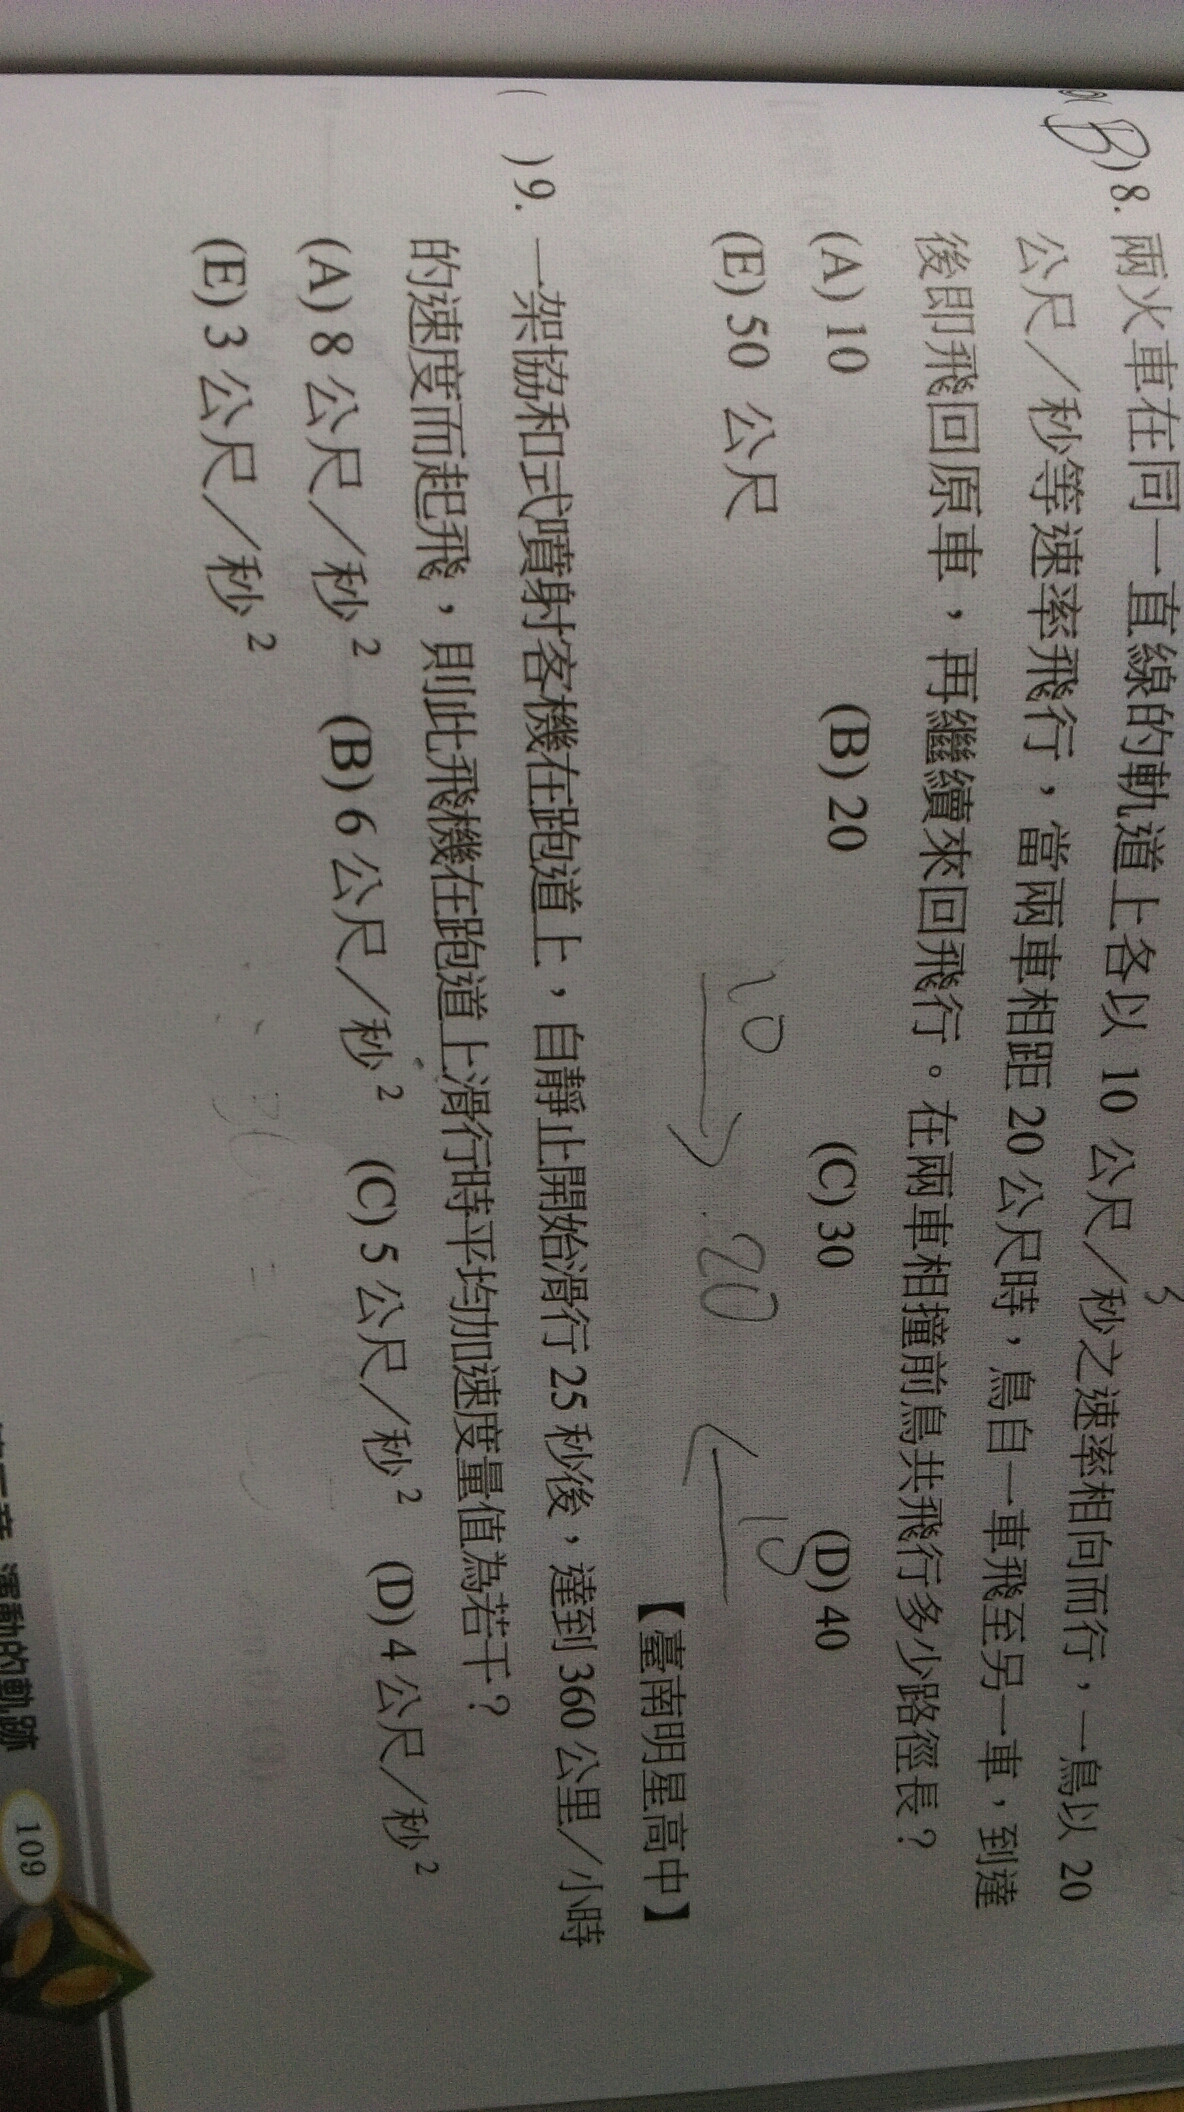 (B)8. 兩火車在同一直線的軌道上各以 10 公尺／秒之速率相向而行，一鳥以 20
公尺／秒等速率飛行，當兩車相距 20 公尺時，鳥自一車飛至另一車，到達
後即飛回原車，再繼續來回飛行。在兩車相撞前鳥共飛行多少路徑長？
(A) 10 (B) 20 (C) 30 (D) 40
(E) 50 公尺
10 20 10
【臺南明星高中】
( )9. 一架協和式噴射客機在跑道上，自靜止開始滑行 25 秒後，達到 360 公里／小時
的速度而起飛，則此飛機在跑道上滑行時平均加速度量值為若干？
(A) 8 公尺／秒² (B) 6 公尺／秒² (C) 5 公尺／秒² (D) 4 公尺／秒²
(E) 3 公尺／秒²
章 運動的軌跡 109